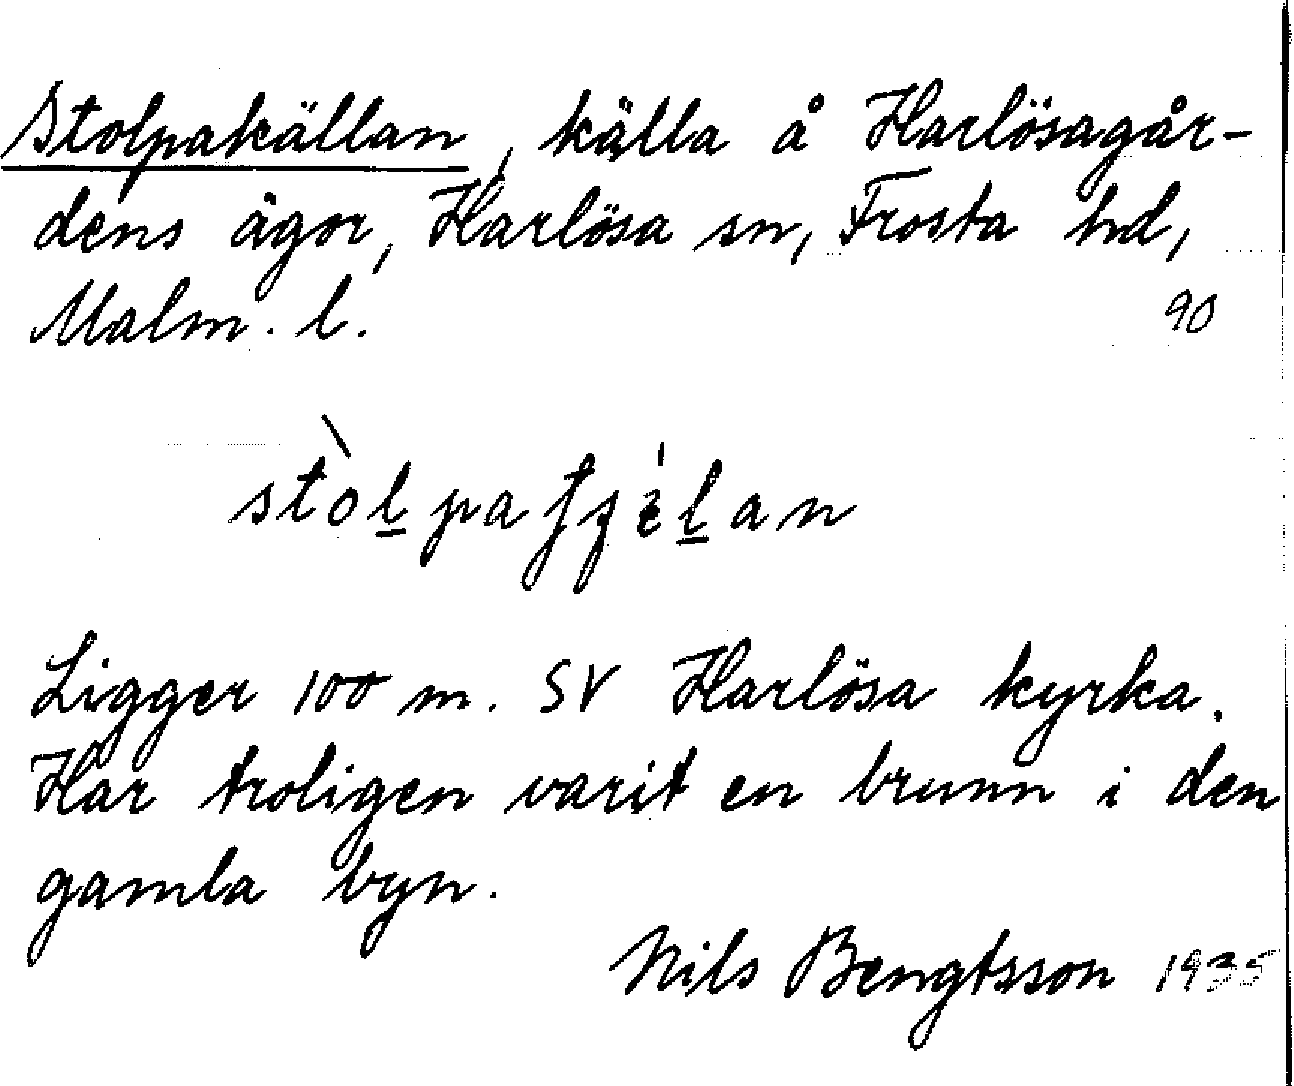 Stolpakällan, källa å Harlösagår-
dens ägor, Harlösa sn, Frosta hd,
Malm. l. 90
Ligger 100 m. SV Harlösa kyrka.
Har troligen varit en brunn i den
gamla byn.
Nils Bengtsson 1935